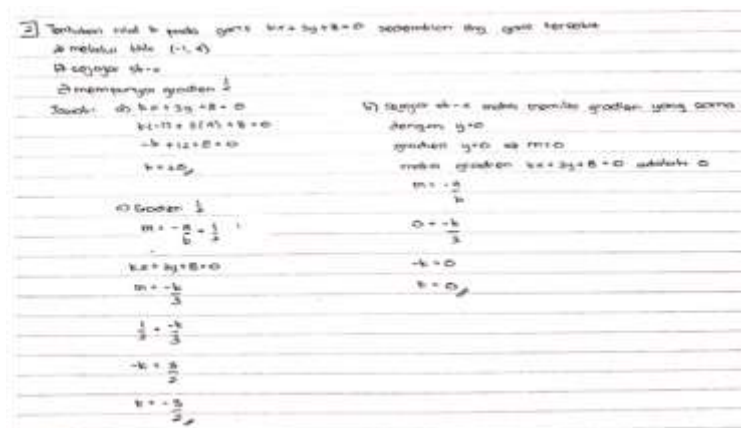 2 Tentukan nilai k pada garis kx + 3y + 8 = 0 sedemikian shg garis tersebut
a) melalui titik (-1, 4)
b) sejajar sb-x
c) mempunyai gradien 1/2
Jawab: a) kx + 3y + 8 = 0
k(-1) + 3(4) + 8 = 0
-k + 12 + 8 = 0
k = 20
c) Gradien 1/2
m = -a/b = 1/2
kx + 3y + 8 = 0
m = -k/3
1/2 = -k/3
-k = 3/2
k = -3/2
b) Sejajar sb-x maka memiliki gradien yang sama
dengan y=0
gradien y=0 ⇒ m=0
maka gradien kx + 3y + 8 = 0 adalah 0
m = -a/b
0 = -k/3
-k = 0
k = 0